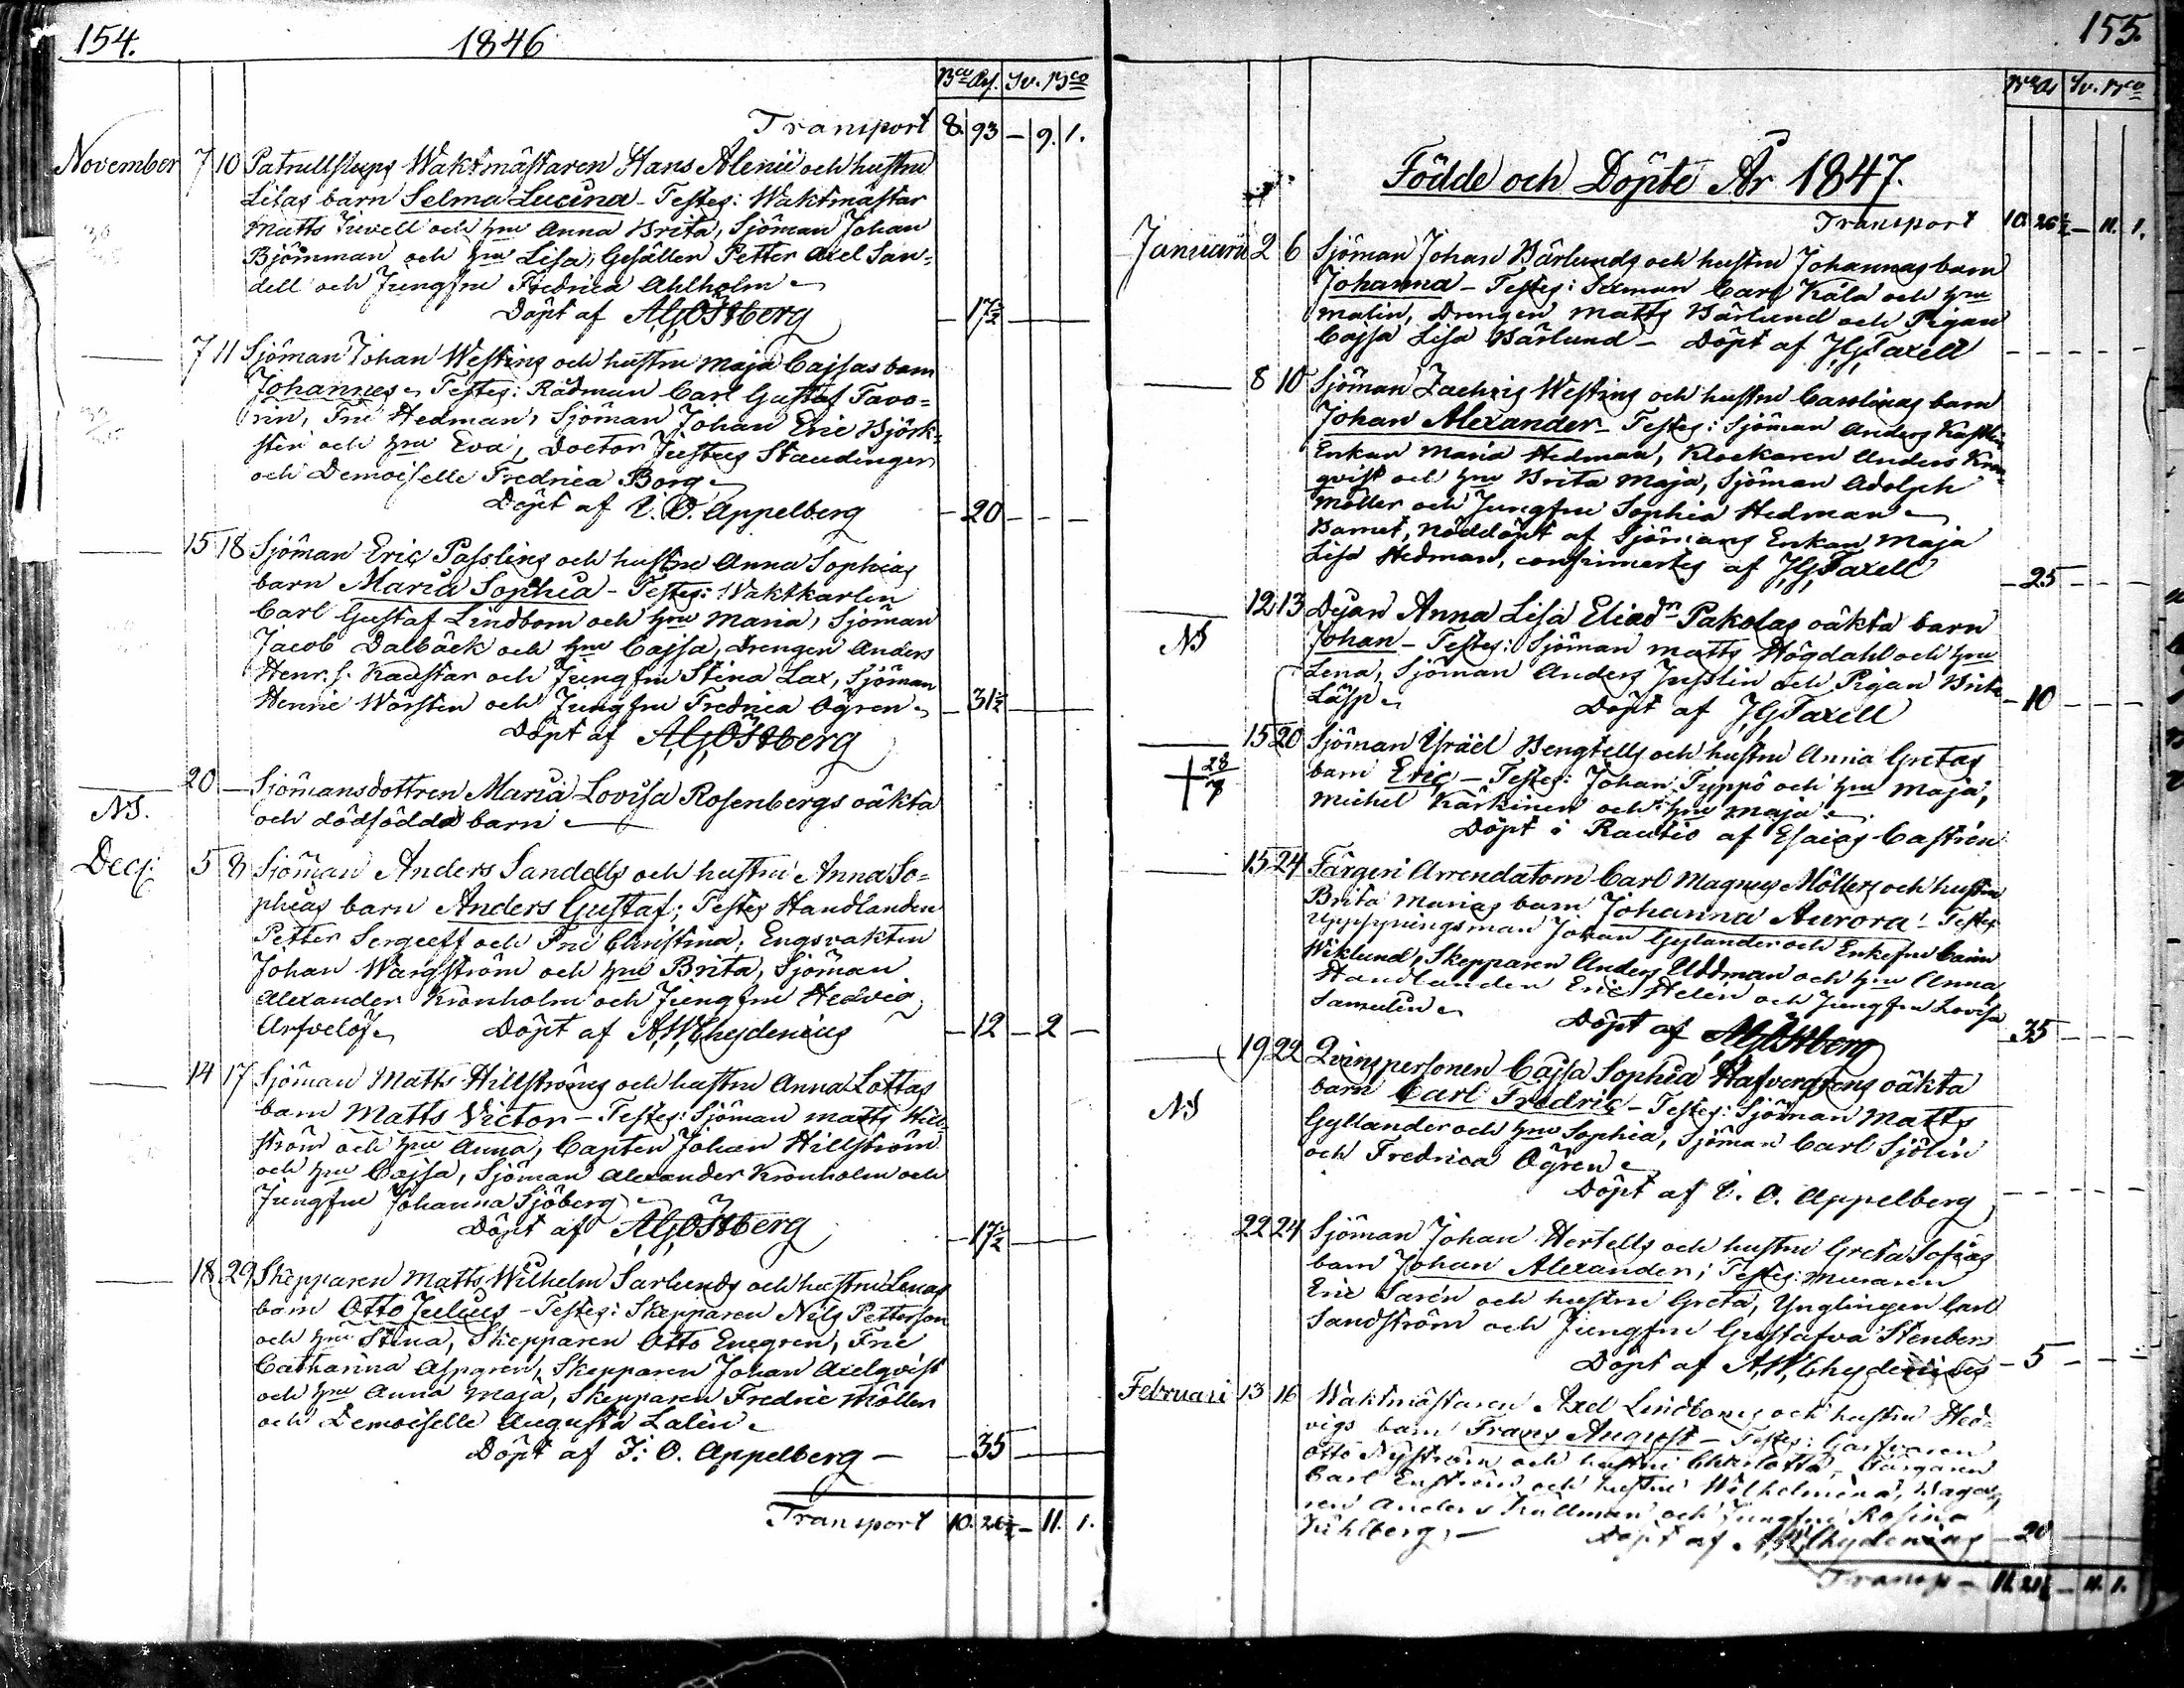 154.
1846
Bco As. Sv. Bco
Transport 8. 93 — 9. 1.
November 7 10 Patrullslups Waktmästaren Hans Alenii och hustru
Lisas barn Selma Lucina - Testes: Waktmästar
Matts Juvell och hru Anna Brita, Sjöman Johan
Björnman och hru Lisa, Gesällen Petter Axel San=
dell och Jungfru Fredrica Ahlholm
Döpt af AGÖstberg — 17½ —
7 11 Sjöman Johan Westings och hustru Maja Cajsas barn
Johannes - Testes: Rådman Carl Gustaf Favo=
rin, Fru Hedman, Sjöman Johan Eric Björk=
sten och hru Eva, Doctor Justus Staudinger
och Demoiselle Fredrica Borg
Döpt af I. O. Appelberg — 20 — — —
15 18 Sjöman Eric Passlins och hustru Anna Sophias
barn Maria Sophia - Testes: Waktkarlen
Carl Gustaf Lindbom och hru Maria, Sjöman
Jacob Dalbäck och hru Cajsa, Drengen Anders
Henr. s. Kaustar och Jungfru Stina Lax, Sjöman
Henric Worsten och Jungfru Fredrica Ögren — 31½ —
Döpt af AGÖstberg
20 — Sjömansdottren Maria Lovisa Rosenbergs oäkta
NS. och dödfödda barn
Decs: 5 8 Sjöman Anders Sandells och hustru Anna So=
phias barn Anders Gustaf; Testes Handlanden
Petter Sergeeff och Fru Christina, Engsvakten
Johan Wargström och hru Brita, Sjöman
Alexander Kronholm och Jungfru Hedvig
Arfvelöf Döpt af AWChydenius — 12 — 2 —
14 17 Sjöman Matts Hillströms och hustru Anna Lottas
barn Matts Victor - Testes: Sjöman Matts Hill=
ström och hru Anna, Capten Johan Hillström
och hru Cajsa, Sjöman Alexander Kronholm och
Jungfru Johanna Sjöberg
Döpt af AGÖstberg — 17½ —
18 29 Skepparen Matts Wilhelm Sarlunds och hustru Lenas
barn Otto Julius - Testes: Skepparen Nils Petterson
och hru Stina, Skepparen Otto Enegren, Fru
Catharina Aspgren, Skepparen Johan Axelqvist
och hru Anna Maja, Skepparen Fredric Möller
och Demoiselle Augusta Lalin
Döpt af I: O. Appelberg — 35 —
Transport 10. 26½ — 11. 1.
155.
Bco As Sv. Bco
Födde och Döpte År 1847.
Transport 10. 26½ — 11. 1.
Januarii 2 6 Sjöman Johan Bärlunds och hustru Johannas barn
Johanna - Testes: Sjöman Carl Kåla och hru
Malin, Drengen Matts Bärlund och Pigan
Cajsa Lisa Bärlund - Döpt af JGTaxell
8 10 Sjöman Zachris Westings och hustru Carolinas barn
Johan Alexander - Testes: Sjöman Anders
Enkan Maria Hedman, Klockaren Anders
qvist och hru Brita Maja, Sjöman Adolph
Möller och Jungfru Sophia Hedman
Barnet, nöddöpt af Sjömans Enkan Maja
Lisa Hedman, confirmertes af JGTaxell — 25 — —
12 13 Dejan Anna Lisa Eliædr Pakolas oäkta barn
NS Johan - Testes: Sjöman Matts Högdahl och hru
Lena, Sjöman Anders Jusslin och Pigan Brita
Läsp Döpt af JGTaxell — 10 — — —
15 20 Sjöman Israël Bengtells och hustru Anna Gretas
28/7 barn Eric - Testes: Johan Typpö och hru Maja,
Michel Kärkinen och hru Maja
Döpt i Rautio af Esaias Castrén
15 24 Färgeri Arrendatorn Carl Magnus Möllers och hustru
Brita Marias barn Johanna Aurora - Testes
Uppsyningsman Johan Gyllander och Enkefru
Wiklund, Skepparen Anders Uddman och hru Anna
Handlanden Eric Helén och Jungfru Lovisa
Samulin
Döpt af AGÖstberg 35 —
19 22 Qvinspersonen Cajsa Sophia Hafvergrens oäkta
NS barn Carl Fredric - Testes: Sjöman Matts
Gyllander och hru Sophia, Sjöman Carl Sjölin
och Fredrica Ögren
Döpt af I. O. Appelberg
22 24 Sjöman Johan Hertells och hustru Greta Sofias
barn Johan Alexander; Testes: Muraren
Eric Sarén och hustru Greta, Ynglingen Carl
Sandström och Jungfru Gustafva Stenberg
Döpt af AWChydenius — 5 — —
Februari 13 16 Waktmästaren Axel Lindboms och hustru Hed=
vigs barn Frans August - Testes: Garfvaren
Otto Nyström och hustru Charlotta, Färgaren
Carl Enström och hustru Wilhelmina,
Anders Kullman och Jungfru Rosina
Döpt af AWChydenius — 20
Transp — 11. 21½ — 11. 1.